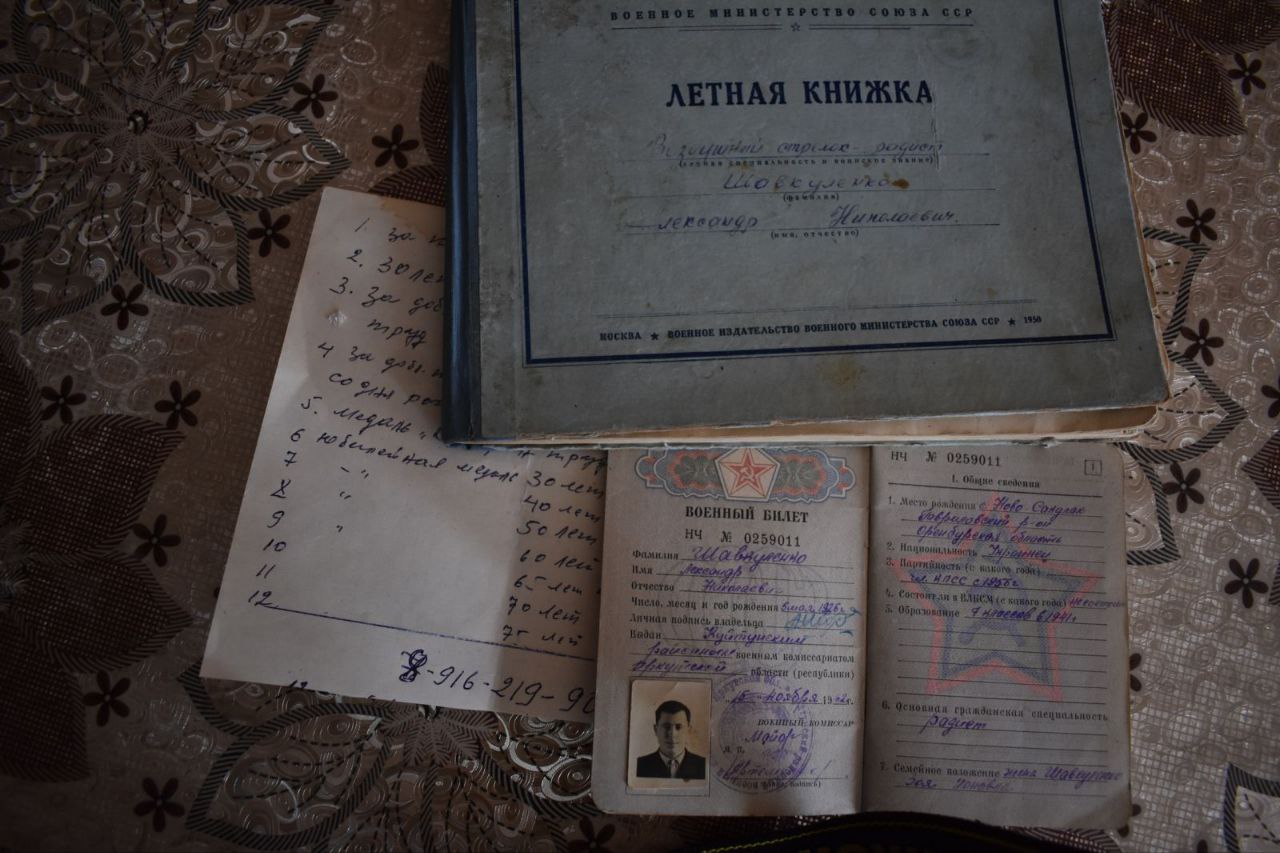 ВОЕННОЕ МИНИСТЕРСТВО СОЮЗА ССР
ЛЕТНАЯ КНИЖКА
Воздушный стрелок-радист
(летная специальность и воинское звание)
Шавкуленко
(фамилия)
лександр Николаевич.
(имя, отчество)
МОСКВА ★ ВОЕННОЕ ИЗДАТЕЛЬСТВО ВОЕННОГО МИНИСТЕРСТВА СОЮЗА ССР ★ 1950
1. За
2. 30 лет
3. За доб
труд
4 За доб.
со дня рож
5. Медаль "
труд
6 юбилейная медаль 30 лет
7 -"- 40 лет
8 " 50 лет
9 " 60 лет
10 65 лет
11 70 лет
12 75 лет
8-916-219-90
ВОЕННЫЙ БИЛЕТ
НЧ № 0259011
Фамилия Шавкуленко
Имя лександр
Отчество Николаевич
Число, месяц и год рождения 6 мая 1926 г
Личная подпись владельца
Выдан Куйтунским
районным военным комиссариатом
Иркутской области (республики)
15 ноября 19
ВОЕННЫЙ КОМИССАР
Майор
М. П.
НЧ № 0259011
1
1. Общие сведения
1. Место рождения с. Ново
р-он
Оренбурская область
2. Национальность Украинец
3. Партийность (с какого года)
чл. КПСС с 1956 г
4. Состоял ли в ВЛКСМ (с какого года)
5. Образование 7 классов в 1941 г
6. Основная гражданская специальность
радист
7. Семейное положение жена Шавкуленко
Зоя